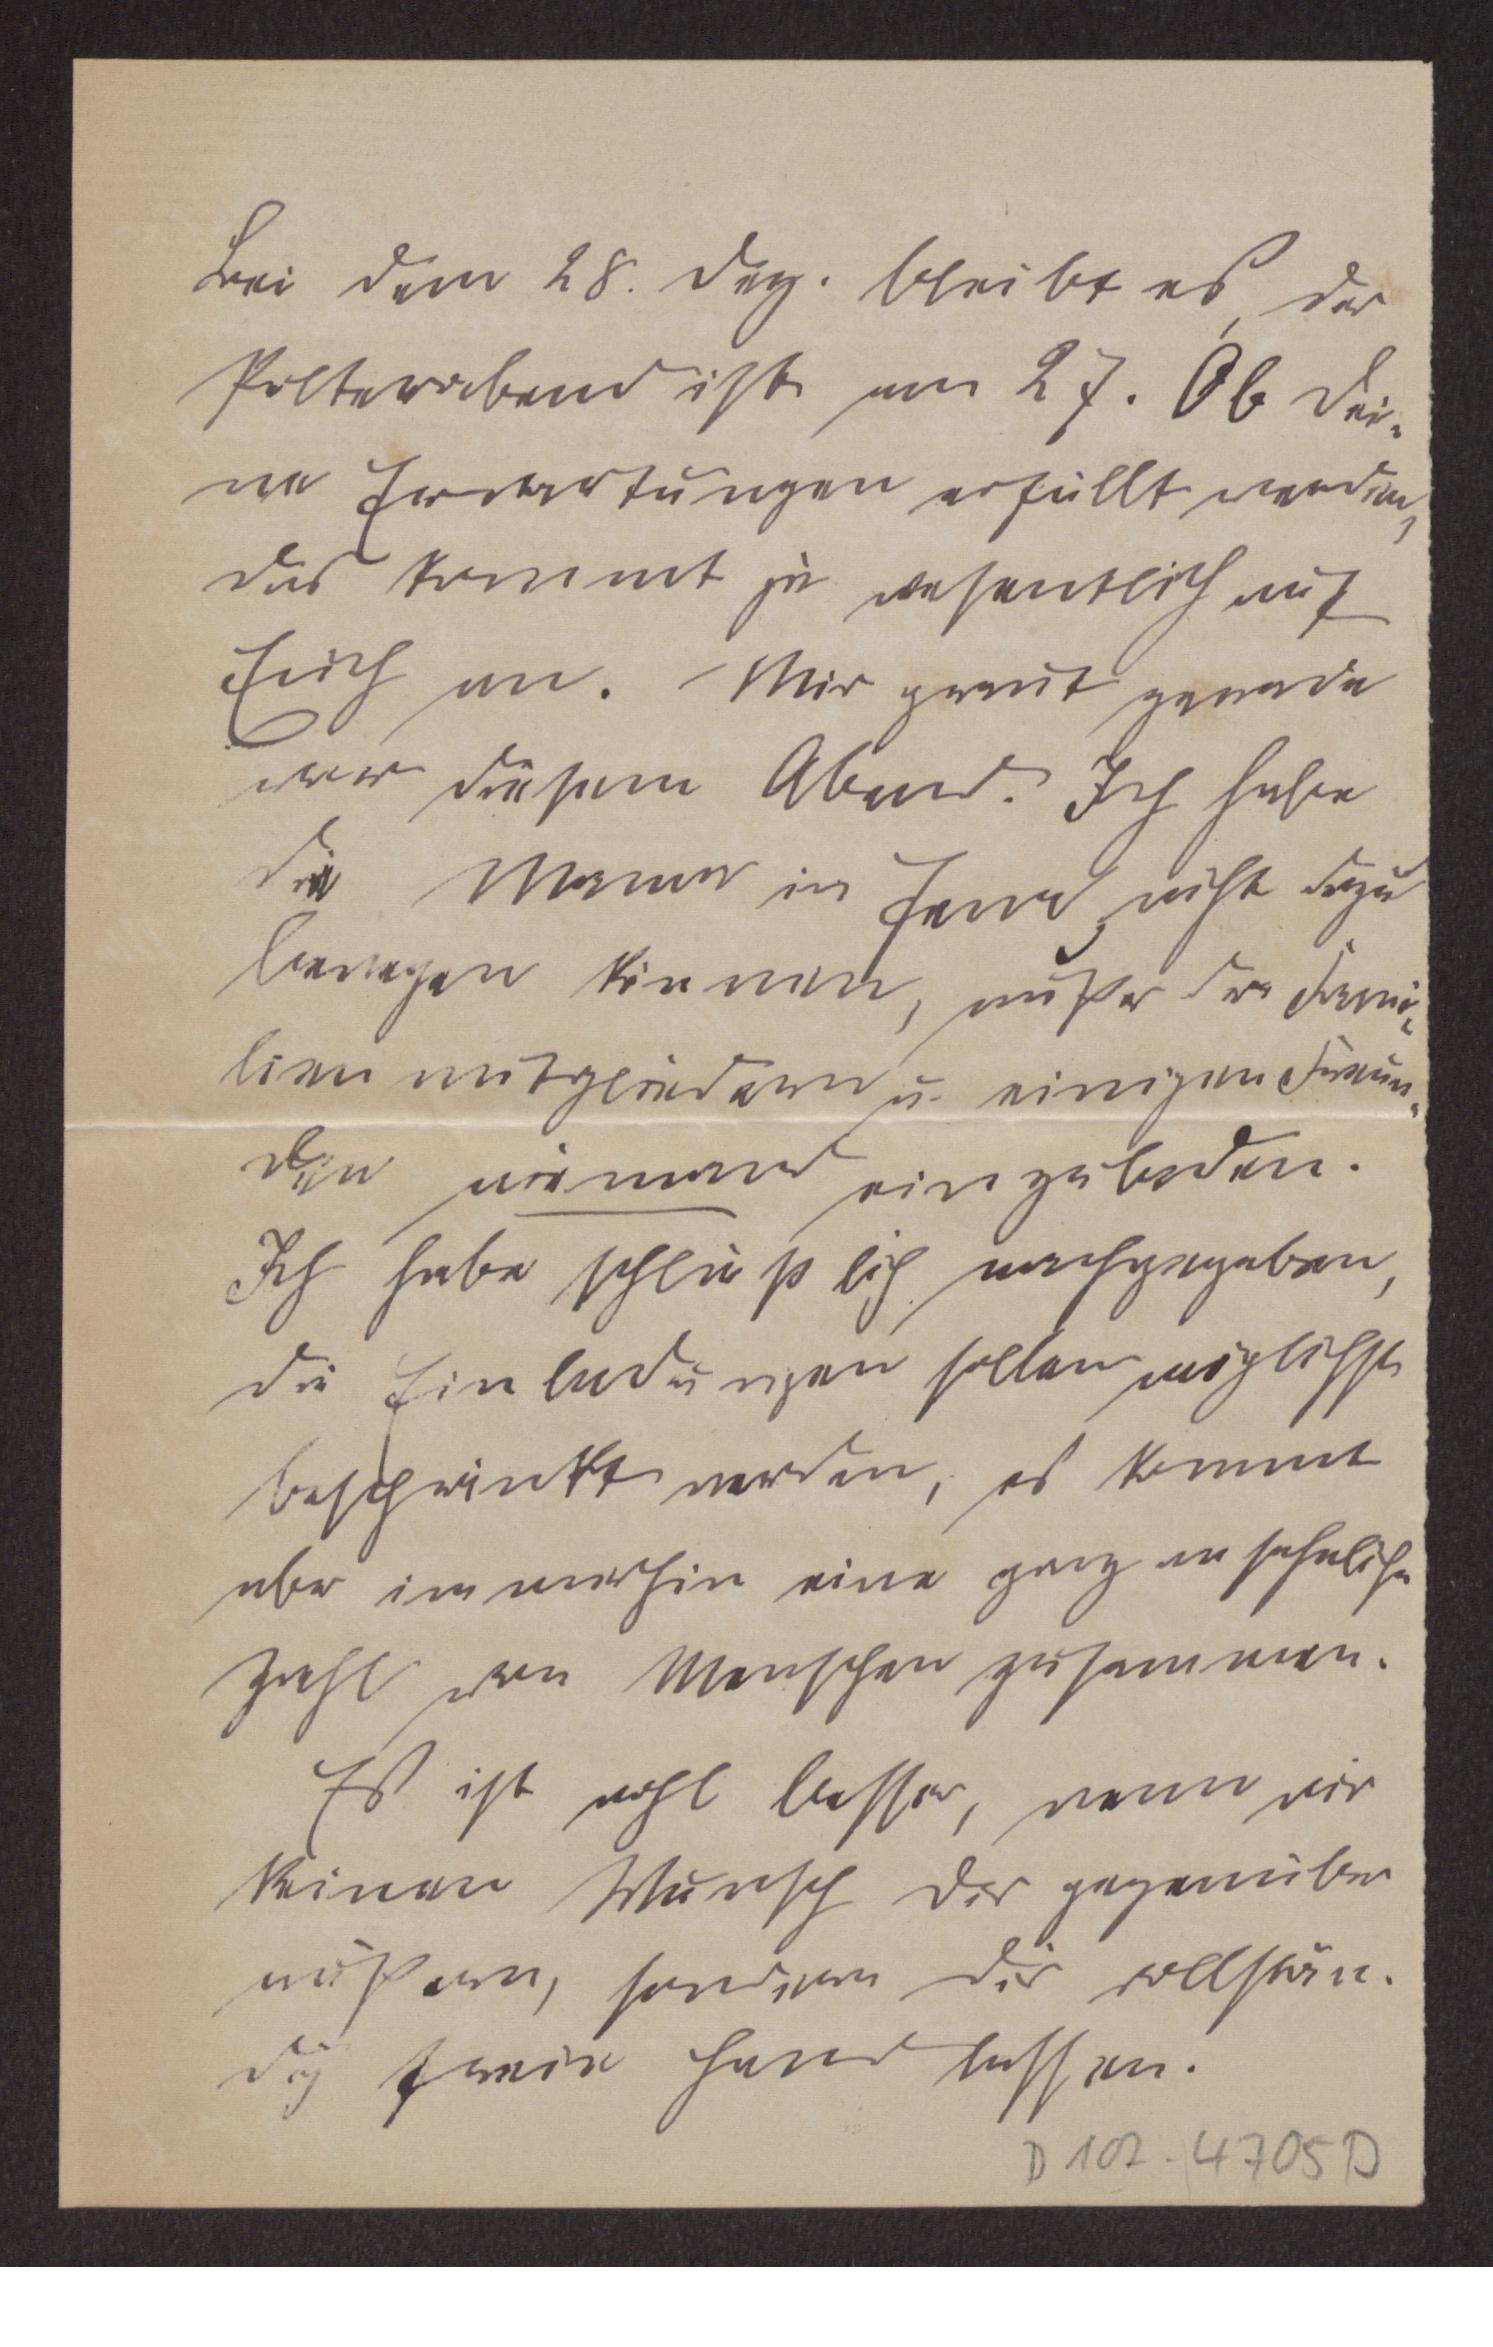 Bei dem 28. Dez. bleibt es, der
Polterabend ist am 27. Ob Dei-
ne Erwartungen erfüllt werden,
das kommt ja wesentlich auf
Euch an. – Mir graut gerade
vor diesem Abend. Ich habe
die Mama in Jena nicht dazu
bewegen können, außer den Fami-
lienmitgliedern u. einigen Freun-
den niemand einzuladen.
Ich habe schließlich nachgegeben,
die Einladungen sollen möglichst
beschränkt werden, es kommt
aber immerhin eine ganz ansehnliche
Zahl von Menschen zusammen.
Es ist wohl besser, wenn wir
keinen Wunsch Dir gegenüber
äußern, sondern Dir vollstän-
dig freie Hand lassen.
D 102. 4705 D